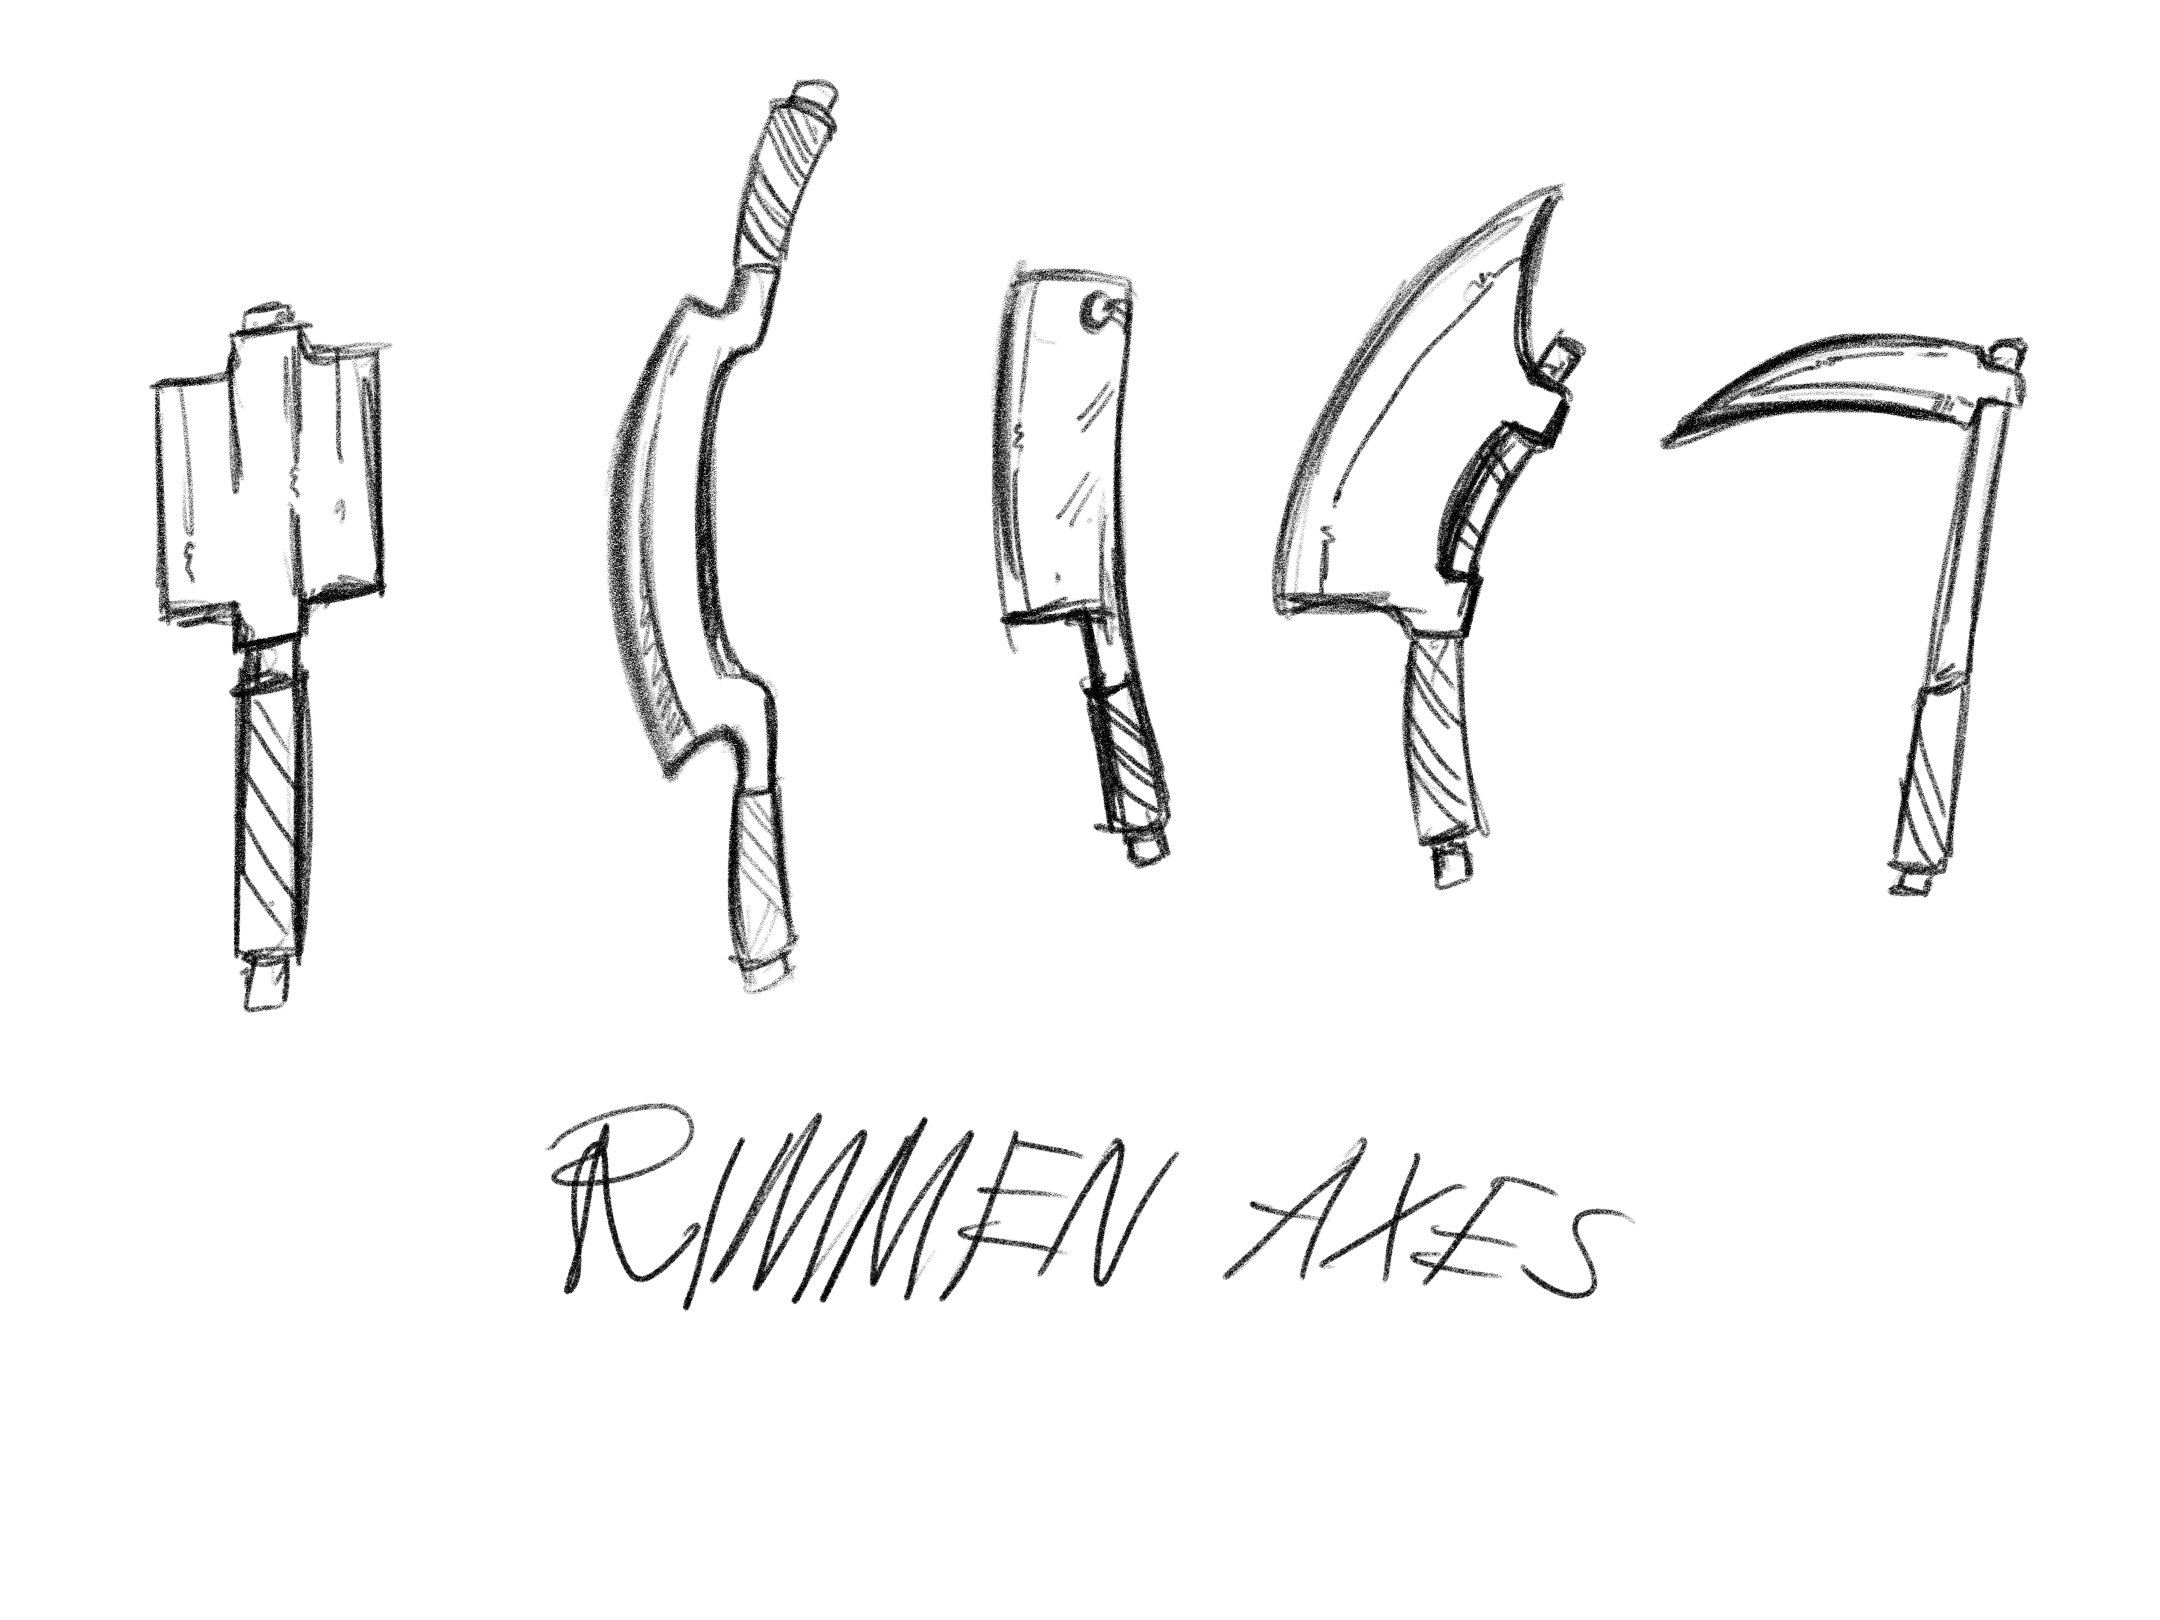 RIMMEN AXES